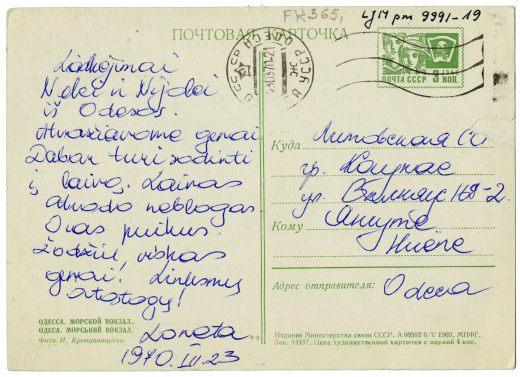 FK365,
LJM pm 9991-19
ПОЧТОВАЯ КАРТОЧКА
ПОЧТА СССР 3 КОП.
Linkėjimai
Nelei ir Nijolei
iš Odesos.
gerai
Dabar turi sodinti
į laivą. Laivas
atrodo neblogas
Oras puikus.
Žodžiu, viskas
gerai! Linksmų
atostogų!
Loneta
1970.III.23
Куда Литовская СС
гр. Каунас
ул. 169-2.
Кому
Адрес отправителя: Одесса
ОДЕССА. МОРСКОЙ ВОКЗАЛ.
ОДЕСА. МОРСЬКИЙ ВОКЗАЛ.
Фото И. Кропивницкого.
Издание Министерства связи СССР. А 06992 6/V 1969. МПФГ.
Зак. 14187. Цена художественной карточки с маркой 4 коп.